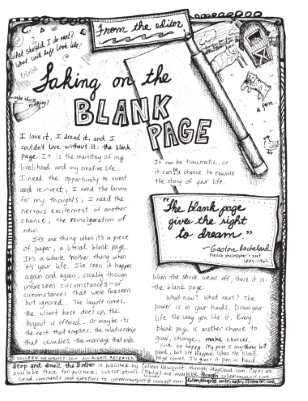 From the editor
What should I do next?
What will life look like?
Taking on the
BLANK
PAGE
I love it, I dread it, and I
couldn't live without it: the blank
page. It is the mainstay of my
livelihood and my creative life.
I need the opportunity to invent
and reinvent, I need the forum
for my thoughts, I need the
nervous excitement of another
chance, the reinvigoration of
new.
It's one thing when it's a piece
of paper, a literal blank page.
It's a whole 'nother thing when
it's your life. I've seen it happen
again and again, usually through
unforeseen circumstances—or
circumstances that were foreseen
but ignored. The layoff comes,
the client base dries up, the
buyout is offered. Or maybe it's
the nest that empties, the relationship
that crumbles, the marriage that ends.
It can be traumatic, or
it can be a chance to rewrite
the story of your life.
"The blank page
gives the right
to dream."
—Gaston Bachelard
French philosopher + poet
1884-1962
When the shock wears off, there it is:
the blank page.
What now? What next? The
power is in your hands. Draw your
life the way you like it. Every
blank page is another chance to
grow, change, make choices,
or be happy. My pen is anything but
blank, but
When the blank
page comes, I'm
pen in hand.
Stop and Smell the
is published by